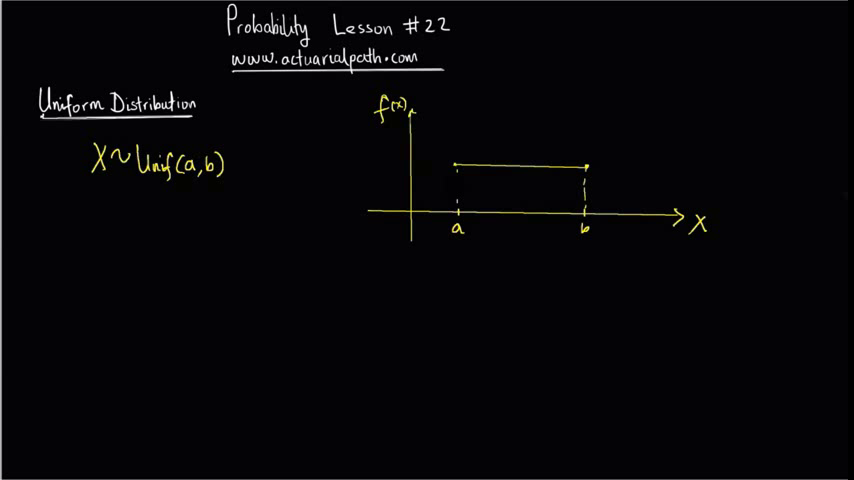 Probability Lesson #22
www.actuarialpath.com
Uniform Distribution
f(x)
X~Unif(a,b)
a
b
X